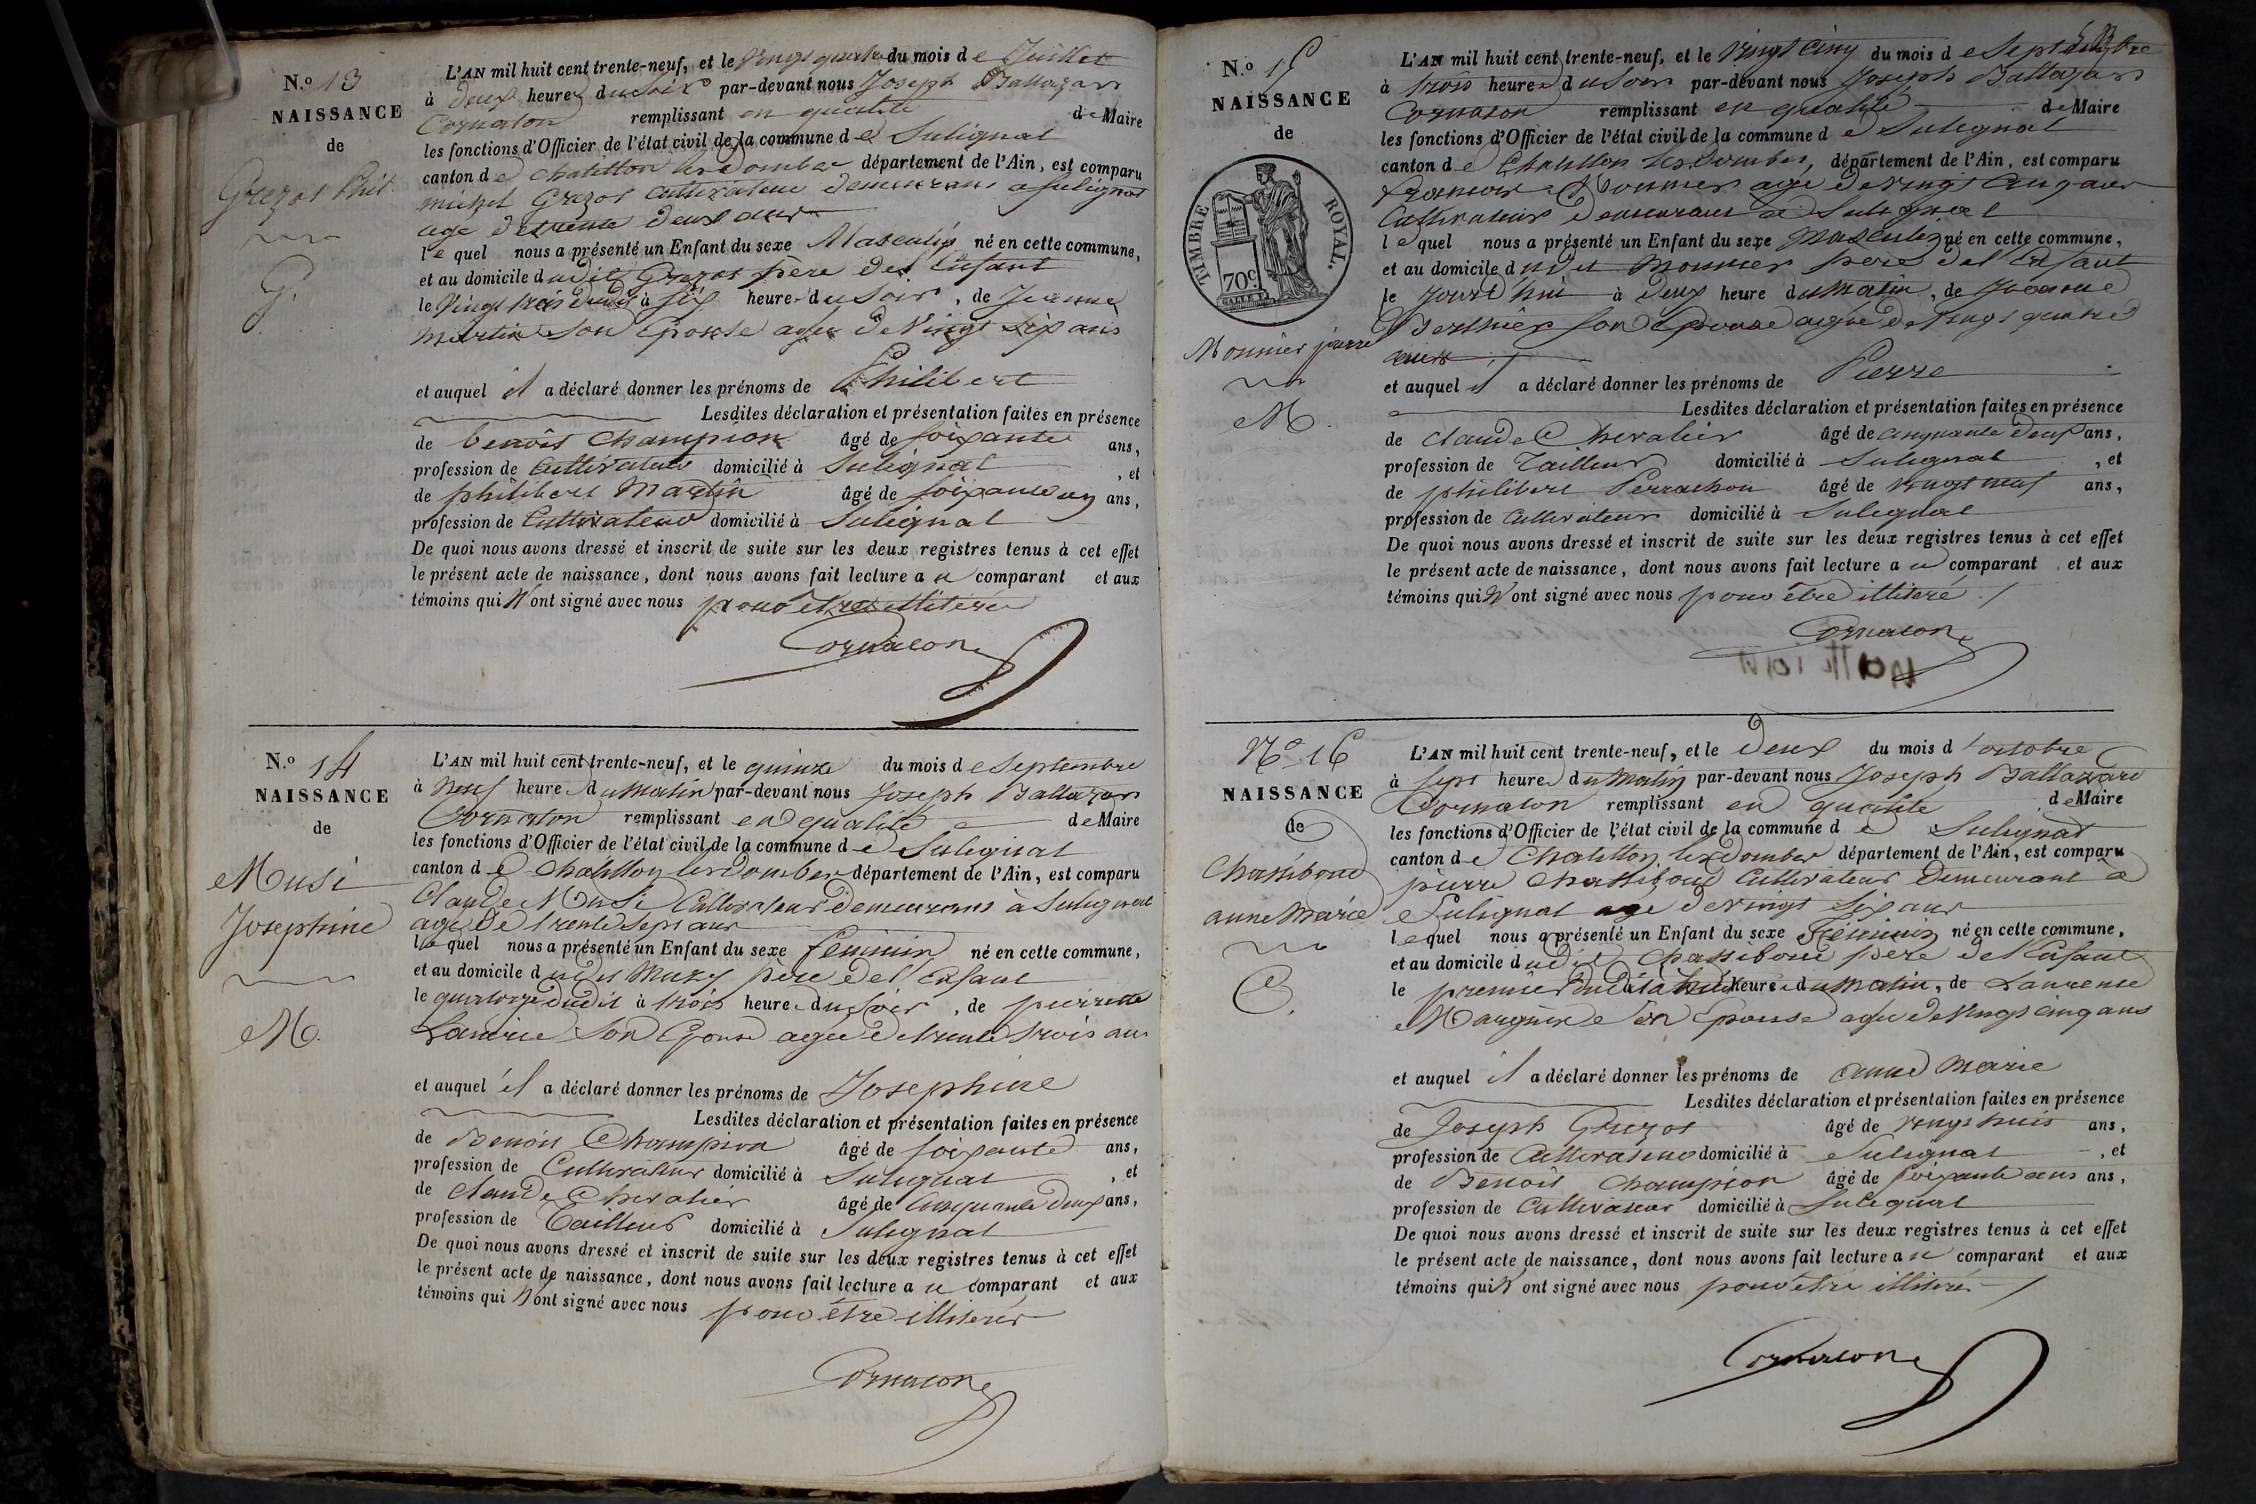 N.º 13
NAISSANCE
de
Grezot Phit.
G.
L'AN mil huit cent trente-neuf, et le vingt quatre du mois de Juillet
à deux heures du soir par-devant nous Joseph Baltazar
Cornaton remplissant en qualité de Maire
les fonctions d'Officier de l'état civil de la commune de Sulignat
canton de chatillon les Dombes département de l'Ain, est comparu
michel Grezot cultivateur demeurant a Sulignat
age de trente deux ans
lequel nous a présenté un Enfant du sexe Masculin né en cette commune,
et au domicile dudit Grezot père de l'enfant
le vingt trois dudit à six heure du soir, de Jeanne
Martin son Epouse agée de vingt six ans
et auquel il a déclaré donner les prénoms de Philibert
Lesdites déclaration et présentation faites en présence
de benoit Champion âgé de soixante ans,
profession de Cultivateur domicilié à Sulignat, et
de philibert Martin âgé de soixante un ans,
profession de Cultivateur domicilié à Sulignat
De quoi nous avons dressé et inscrit de suite sur les deux registres tenus à cet effet
le présent acte de naissance, dont nous avons fait lecture au comparant et aux
témoins qui N'ont signé avec nous pour être illiteré
Cornaton
N.º 14
NAISSANCE
de
Musi
Josephine
M.
L'AN mil huit cent trente-neuf, et le quinze du mois de Septembre
à Neuf heure du Matin par-devant nous Joseph Baltazar
Cornaton remplissant en qualité de Maire
les fonctions d'Officier de l'état civil de la commune de Sulignat
canton de chatillon les Dombes département de l'Ain, est comparu
Claude Musi Cultivateur demeurant à Sulignat
age de trente sept ans
lequel nous a présenté un Enfant du sexe feminin né en cette commune,
et au domicile dudit Muzy père de l'enfant
le quatorze dudit à trois heure du soir, de pierrette
son Epouse agée de trente trois ans
et auquel il a déclaré donner les prénoms de Josephine
Lesdites déclaration et présentation faites en présence
de Benoit Champion âgé de soixante ans,
profession de Cultivateur domicilié à Sulignat, et
de claude Chevalier âgé de cinquante deux ans,
profession de Tailleur domicilié à Sulignat
De quoi nous avons dressé et inscrit de suite sur les deux registres tenus à cet effet
le présent acte de naissance, dont nous avons fait lecture au comparant et aux
témoins qui N'ont signé avec nous pour être illiteré
Cornaton
N.º 15
NAISSANCE
de
TIMBRE ROYAL.
70c.
Monnier pierre
M.
L'AN mil huit cent trente-neuf, et le vingt cinq du mois de Septembre
à trois heure du soir par-devant nous Joseph Baltazar
Cornaton remplissant en qualité de Maire
les fonctions d'Officier de l'état civil de la commune de Sulignat
canton de Chatillon les Dombes, département de l'Ain, est comparu
francois Monnier agé de vingt cinq ans
Cultivateur demeurant a Sulignat
lequel nous a présenté un Enfant du sexe Masculin né en cette commune,
et au domicile dudit Monnier pere de l'enfant
le jourd'hui à deux heure du Matin, de
Berthier son epouse agée de vingt quatre
ans
et auquel il a déclaré donner les prénoms de Pierre
Lesdites déclaration et présentation faites en présence
de claude Chevalier âgé de cinquante deux ans,
profession de Tailleur domicilié à Sulignat, et
de philibert Perrachon âgé de vingt neuf ans,
profession de Cultivateur domicilié à Sulignat
De quoi nous avons dressé et inscrit de suite sur les deux registres tenus à cet effet
le présent acte de naissance, dont nous avons fait lecture au comparant et aux
témoins qui N'ont signé avec nous pour être illiteré
Cornaton
Nº 16
NAISSANCE
de
Chassiboud
anne Marie
C.
L'AN mil huit cent trente-neuf, et le deux du mois d'octobre
à sept heure du Matin par-devant nous Joseph Baltazard
Cornaton remplissant en qualité de Maire
les fonctions d'Officier de l'état civil de la commune de Sulignat
canton de Chatillon les Dombes département de l'Ain, est comparu
pierre Chassiboud Cultivateur demeurant à
Sulignat age de vingt six ans
lequel nous a présenté un Enfant du sexe Féminin né en cette commune,
et au domicile dudit Chassiboud pere de l'enfant
le premier dudit à huit heure du Matin, de Laurence
son Epouse agée de vingt cinq ans
et auquel il a déclaré donner les prénoms de anne Marie
Lesdites déclaration et présentation faites en présence
de Joseph Grezot âgé de vingt huit ans,
profession de Cultivateur domicilié à Sulignat, et
de Benoit Champion âgé de soixante ans ans,
profession de Cultivateur domicilié à Sulignat
De quoi nous avons dressé et inscrit de suite sur les deux registres tenus à cet effet
le présent acte de naissance, dont nous avons fait lecture au comparant et aux
témoins qui N'ont signé avec nous pour être illiteré
Cornaton